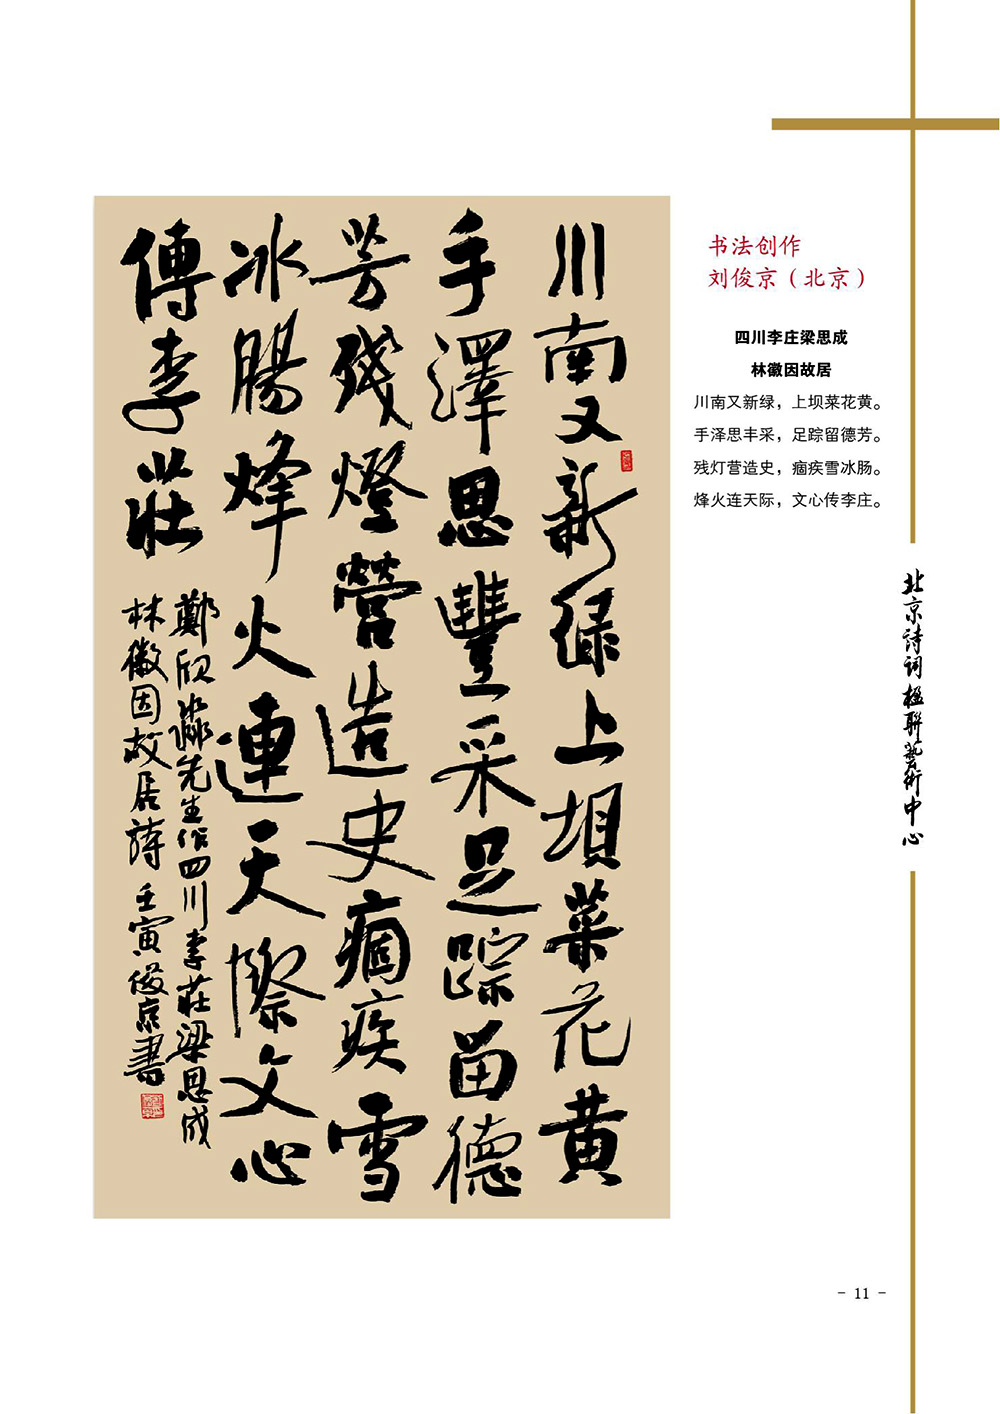 川南又新绿上坝菜花黄
手澤思豐采足踪留德
芳殘燈營造史痼疾雪
冰腸烽火連天際文心
傳李莊
鄭欣淼先生作四川李莊梁思成
林徽因故居詩 壬寅 俊京書
书法创作
刘俊京（北京）
四川李庄梁思成
林徽因故居
川南又新绿，上坝菜花黄。
手泽思丰采，足踪留德芳。
残灯营造史，痼疾雪冰肠。
烽火连天际，文心传李庄。
北京詩词楹联藝術中心
- 11 -